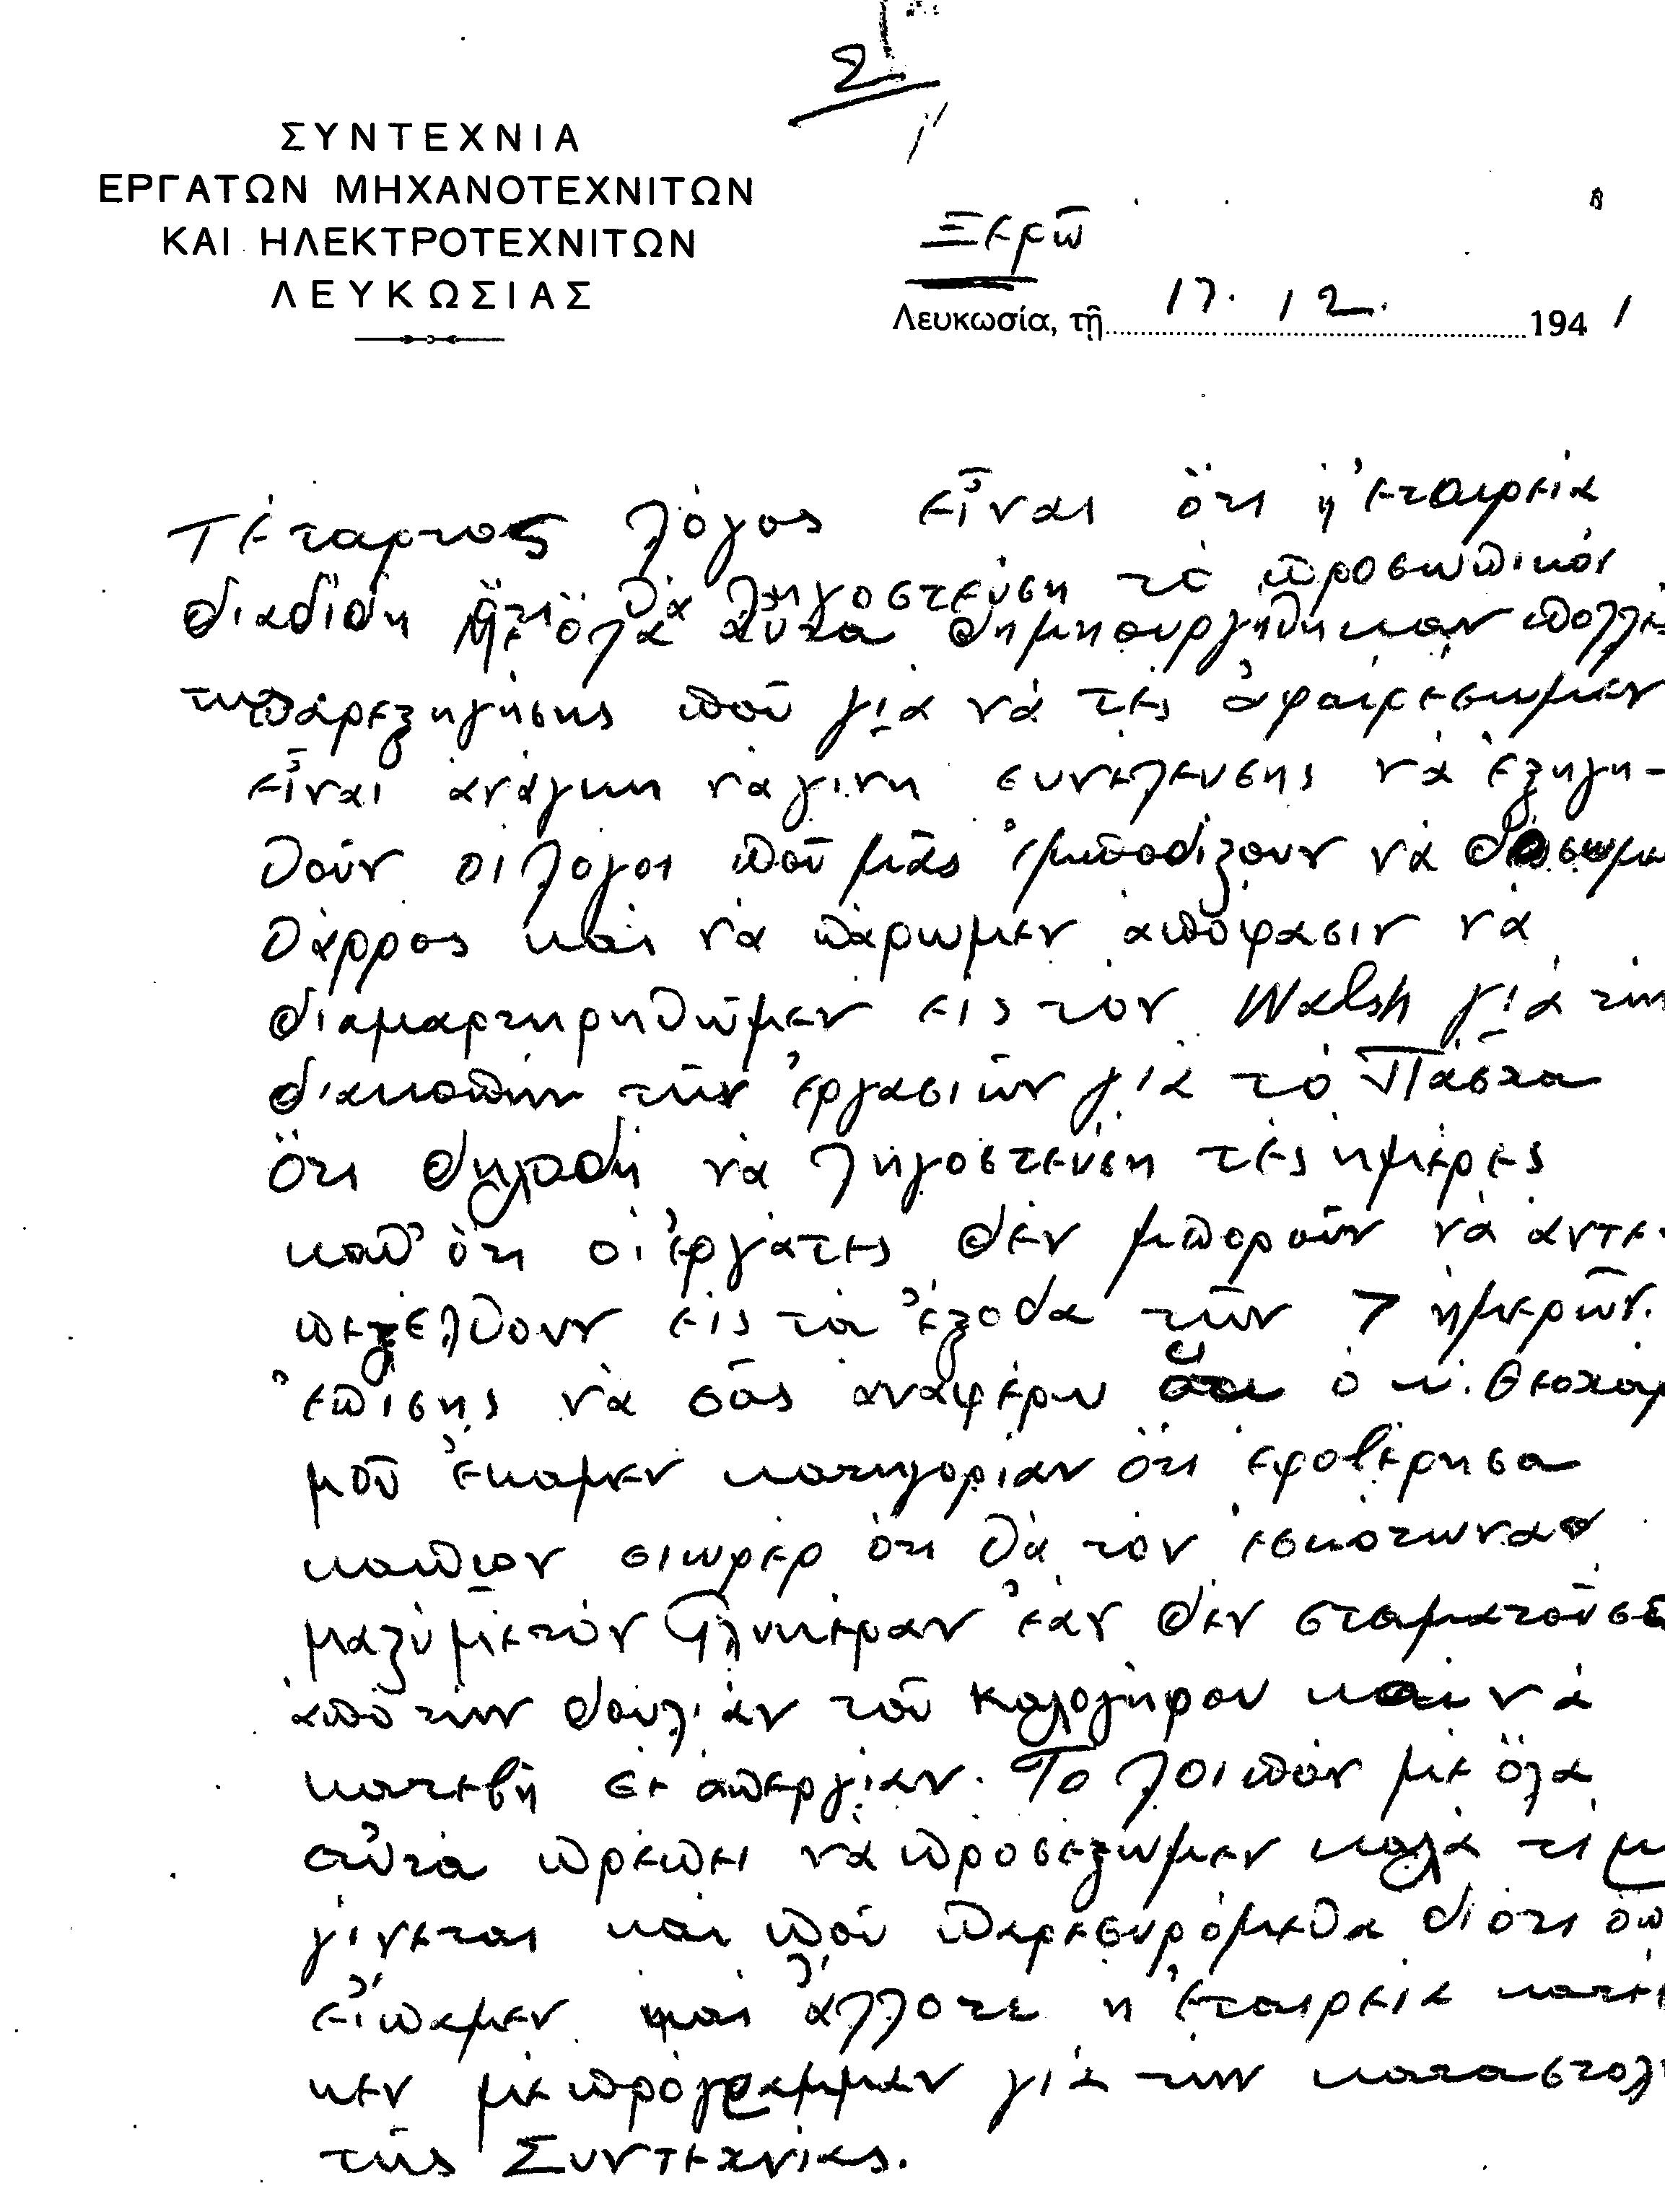 2
ΣΥΝΤΕΧΝΙΑ
ΕΡΓΑΤΩΝ ΜΗΧΑΝΟΤΕΧΝΙΤΩΝ
ΚΑΙ ΗΛΕΚΤΡΟΤΕΧΝΙΤΩΝ
ΛΕΥΚΩΣΙΑΣ
Ξερῶ
Λευκωσία, τῇ 17. 12. 1941
Τέταρτος λόγος εἶναι ὅτι ἡ ἑταιρεία
διαδίδη ὅτι θὰ ληγοστεύση τὸ προσωπικόν
των
Μὲ ὅλα αὐτὰ δημηουργήθηκαν πολλὲς
παρεξηγήσης ποῦ γιὰ νὰ τὲς ἀφαιρέσωμεν
εἶναι ἀνάγκη νὰ γίνη συνελευσης νὰ ἐξηγη-
θοῦν οἱ λόγοι ποῦ μᾶς ἐμποδίζουν νὰ δόσωμε
θάρρος καὶ νὰ πάρωμεν ἀπόφασιν νὰ
διαμαρτηρηθῶμεν εἰς τὸν Walsh γιὰ τὴν
διακοπὴν τῶν ἐργασιῶν γιὰ τὸ Πάσχα
ὅτι δηλαδὴ νὰ ληγοστεύση τὲς ημέρες
καθ' ὅτι οἱ ἐργάτες δὲν μποροῦν νὰ ἀντε-
πεξέλθουν εἰς τὰ ἔξοδα τῶν 7 ἡμερῶν.
ἐπίσης νὰ σᾶς ἀναφέρω ὅτι ὁ κ. Θεοχαρ
μοῦ ἔκαμεν κατηγορίαν ὅτι ἐφοβέρησα
κάπιον σιωφέρ ὅτι θὰ τὸν ἐσκότωνα
μαζὺ μὲ τὸν Γλυκέραν ἐὰν δὲν σταματοῦσε
ἀπὸ τὴν δουλιὰν τοῦ Καλογήρου καὶ νὰ
κατεβῆ σὲ ἀπεργίαν. Τὸ λοιπὸν μὲ ὅλα
αὐτὰ πρέπει νὰ προσέξωμεν καλὰ τὶ μ
γίνεται καὶ ποῦ παρεσυρόμεθα διότι ὁπ
εἴπαμεν καὶ ἄλλοτε ἡ ἑταιρεία κατέ
κεν μὲ πρόγραμμαν γιὰ τὴν καταστολὴ
τῆς Συντεχνίας.